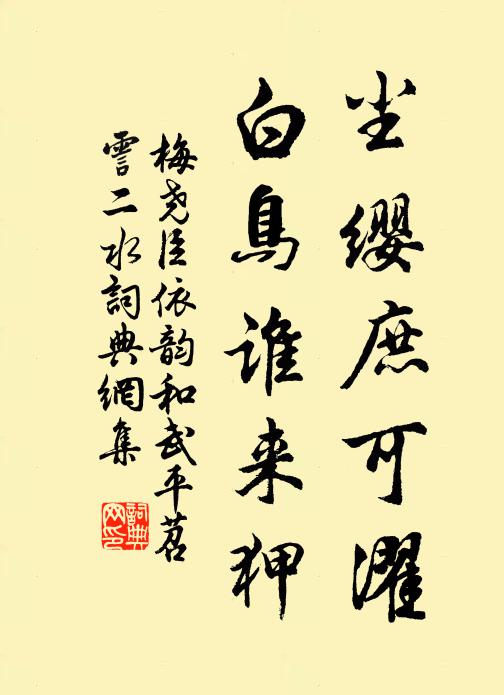 尘缨庶可濯
白鳥谁来狎
梅尧臣依韵和武平苕
霅二水詞典網集
詞典网印